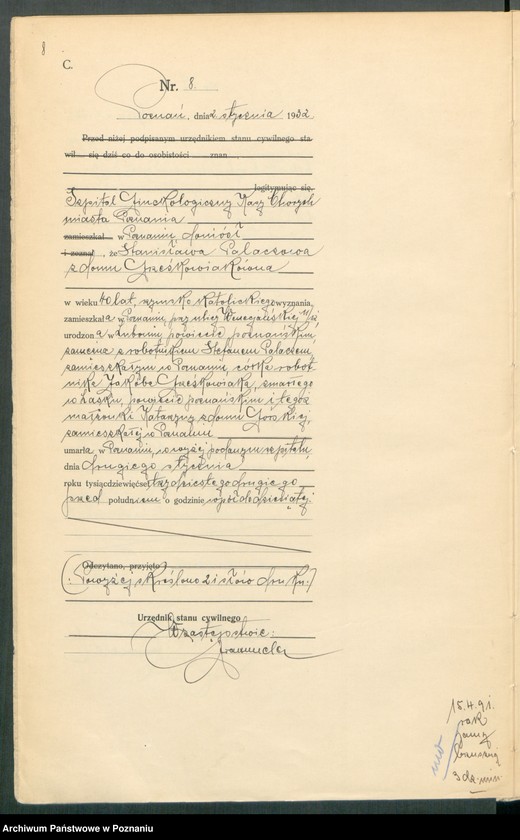 8
C.
Nr. 8.
Poznań, dnia 2 stycznia 1932
Przed niżej podpisanym urzędnikiem stanu cywilnego sta-
wił się dziś co do osobistości znan
legitymując się
Szpital Ginekologiczny Kasy Chorych
miasta Poznania
zamieszkał w Poznaniu doniósł
i zeznał, że Stanisława Palaczowa
z domu Grześkowiakówna
w wieku 40 lat, rzymsko katolickiego wyznania,
zamieszkała w Poznaniu, przy ulicy
urodzona w Luboniu, powiecie poznańskim,
zamężna z robotnikiem Stefanem Palaczem
zamieszkałym w Poznaniu, córka robot-
nika Jakóba Grześkowiaka, zmarłego
w Łasku, powiecie poznańskim i tegoż
małżonki Katarzyny z domu Górskiej,
zamieszkałej w Poznaniu
umarła w Poznaniu, w wyżej podanym szpitalu
dnia drugiego stycznia
roku tysiąc dziewięćset trzydziestego drugiego
przed południem o godzinie wpół do dziesiątej.
Odczytano, przyjęto
(: Powyżej skreślono 21 słów druku. :)
Urzędnik stanu cywilnego
W zastępstwie:
15.4.91.
rak
3 da. min.
Archiwum Państwowe w Poznaniu